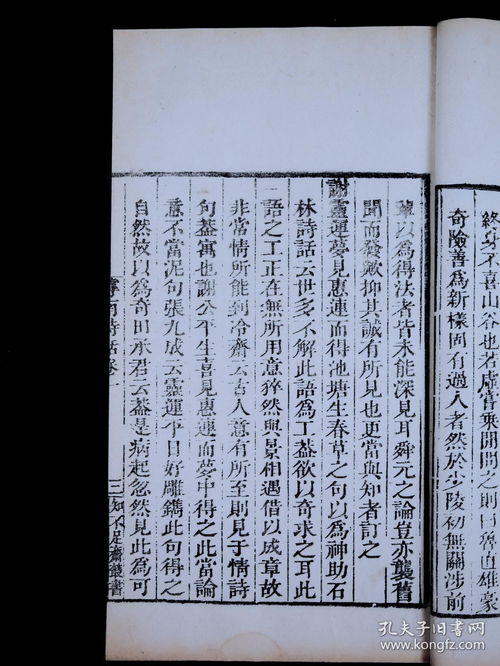 終身不喜山谷也若虛嘗乘閒問之則曰魯直雄豪
奇險善為新樣固有過人者然於少陵初無關涉前
輩以為得法者皆未能深見耳舜元之論豈亦襲舊
聞而發歟抑其誠有所見也更當與知者訂之
謝靈運夢見惠連而得池塘生春草之句以為神助石
林詩話云世多不解此語為工葢欲以奇求之耳此
語之工正在無所用意猝然與景相遇借以成章故
非常情所能到冷齋云古人意有所至則見于情詩
句葢寓也謝公平生喜見惠連而夢中得之此當論
意不當泥句張九成云靈運平日好雕鐫此句得之
自然故以為奇田承君云葢是病起忽然見此為可
滹南詩話卷一
三
知不足齋叢書
孔夫子旧书网
www.kongfz.com